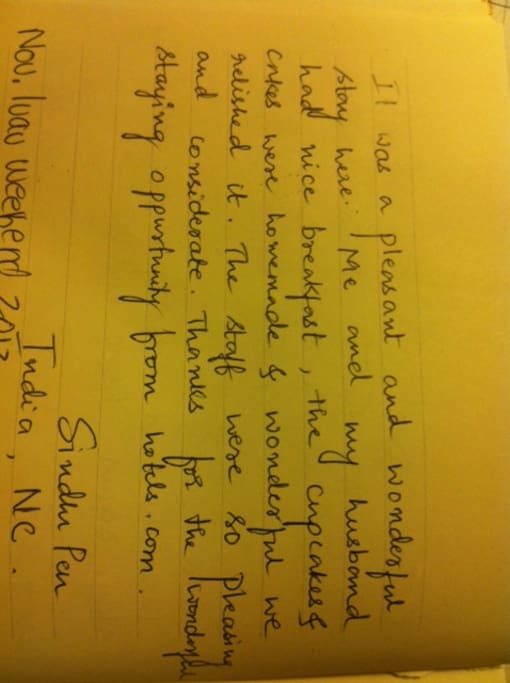 It was a pleasant and wonderful
stay here. Me and my husband
had nice breakfast, the cupcakes &
cakes were homemade & wonderful we
relished it. The staff were so pleasing
and considerate. Thanks for the wonderful
staying oppurtunity from hotels.com.
Sindhu
India, NC.
Nov. weekend 2012